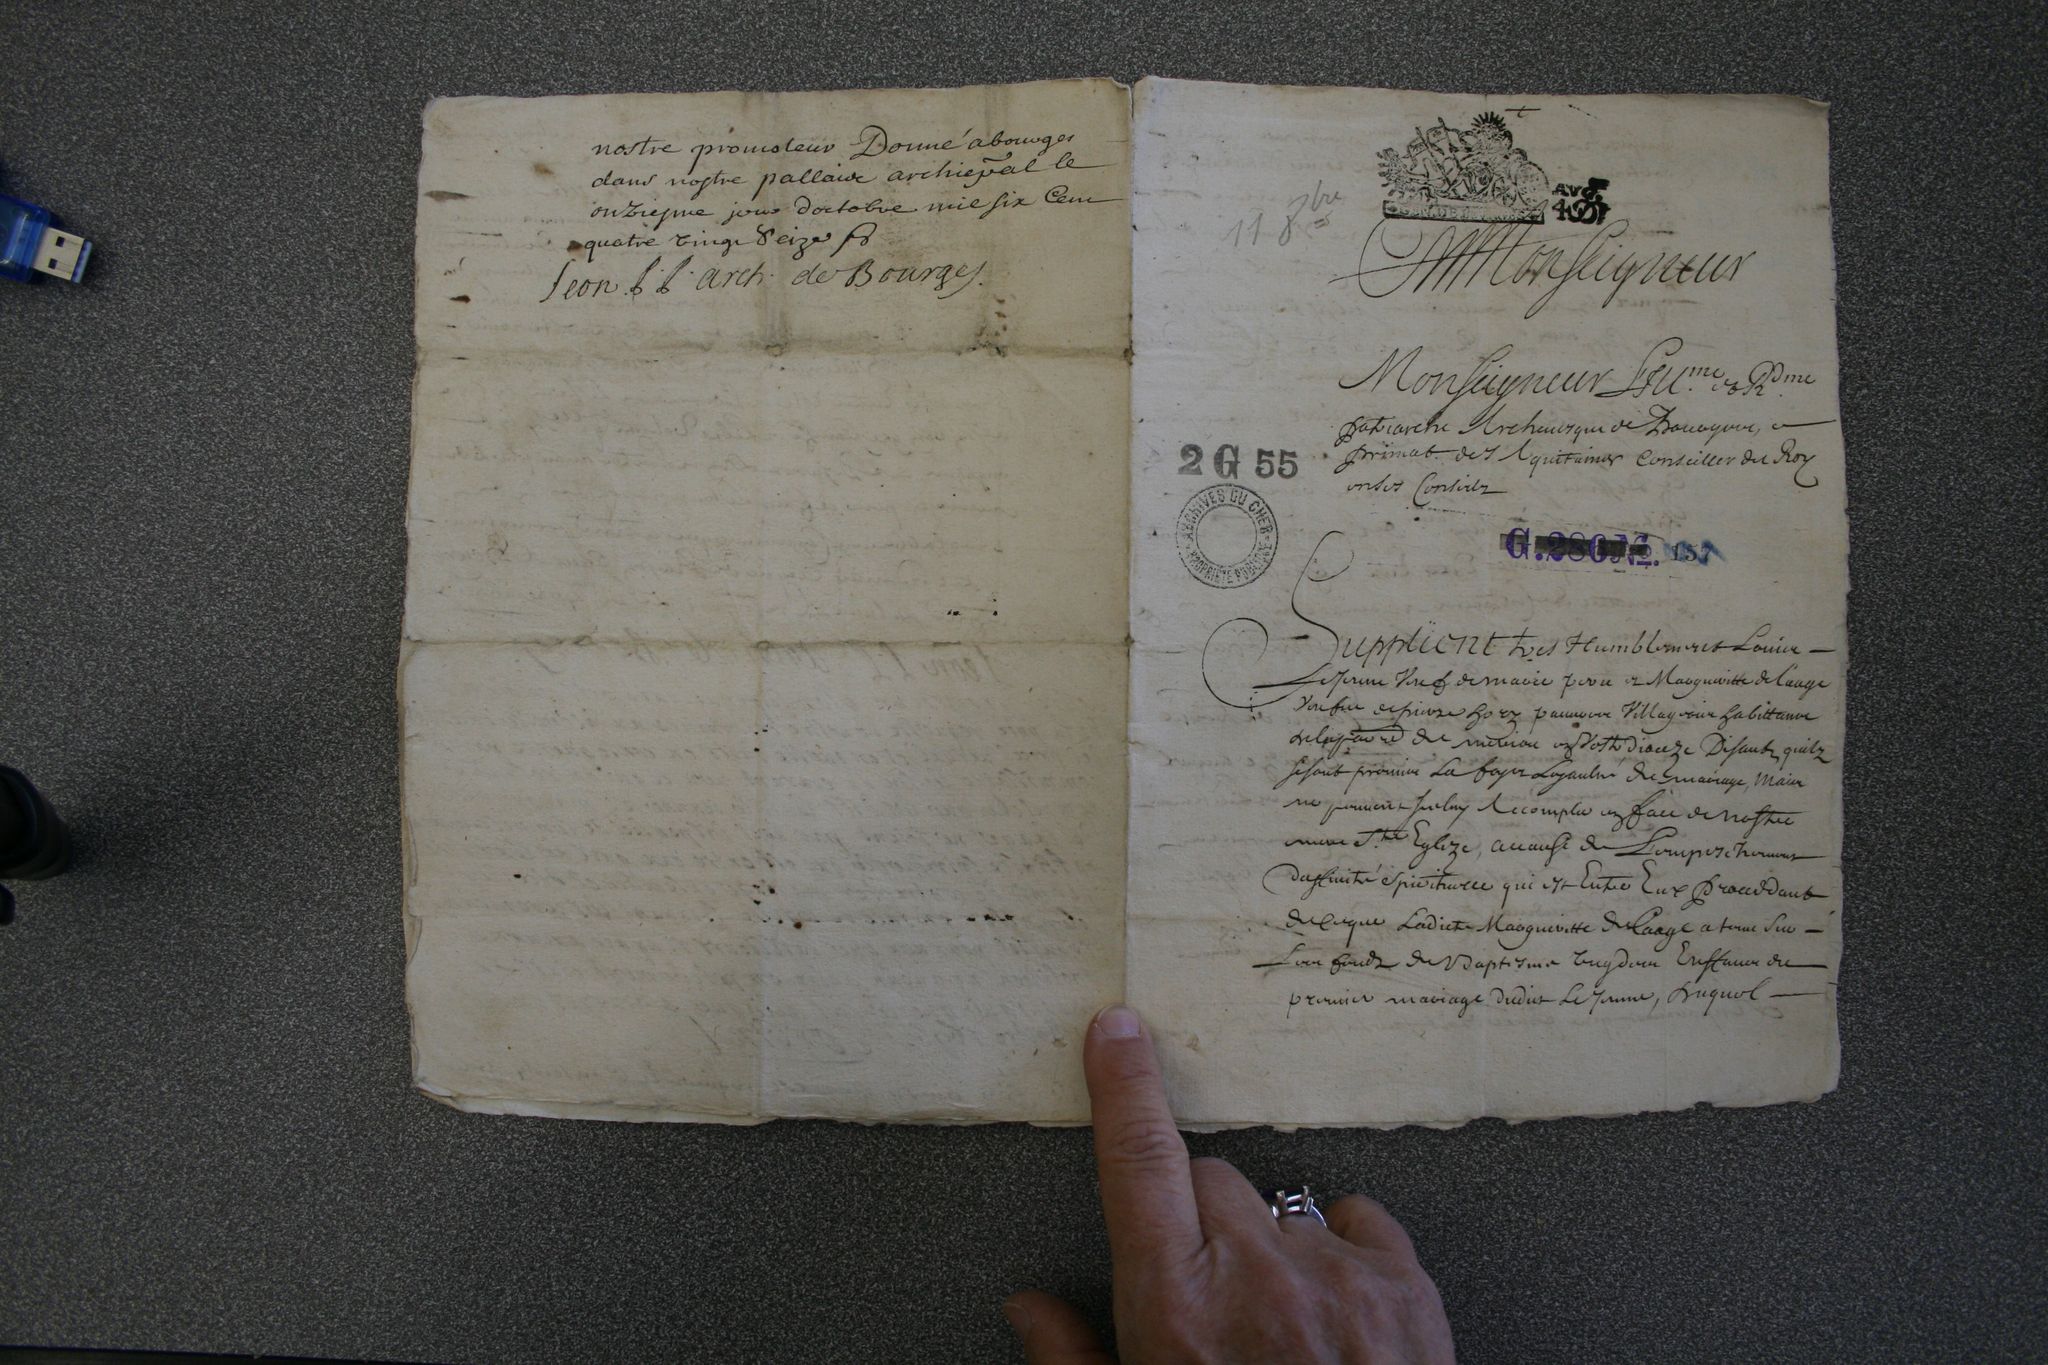 nostre promoteur Donné a bourges
dans nostre pallais archiepāl le
onziesme jour doctobre mil six Cent
quatre vingt Seize
Leon P. P. arch. de Bourges.
11 8bre
Monseigneur
Monseigneur Illme et Rdme
patriarche Archevesque de Bourges, et
primat des Aquitaines Conseiller du Roy
en ses Conseils
2 G 55
ARCHIVES DU CHER
PROPRIÉTÉ PUBLIQUE
G. 280 No. 157
Supplient tres Humblement Louis
Le Jeune Veuf de marie et Margueritte de Laage
Veufve de pierre pauvres Villageois habittans
de la parr de en Vostre dioceze Disants quilz
se sont promis La foy et Loyaulté de mariage, Mais
ne peuvent Iceluy Accomplir en face de nostre
mere Ste Eglize, a cause de Lempeschement
daffinité Spirituelle qui est Entre Eux proceddant
de ce que Ladicte Margueritte de Laage a tenu Sur
Les fonds de Baptesme Lun des Enffans du
premier mariage dudict Le Jeune,